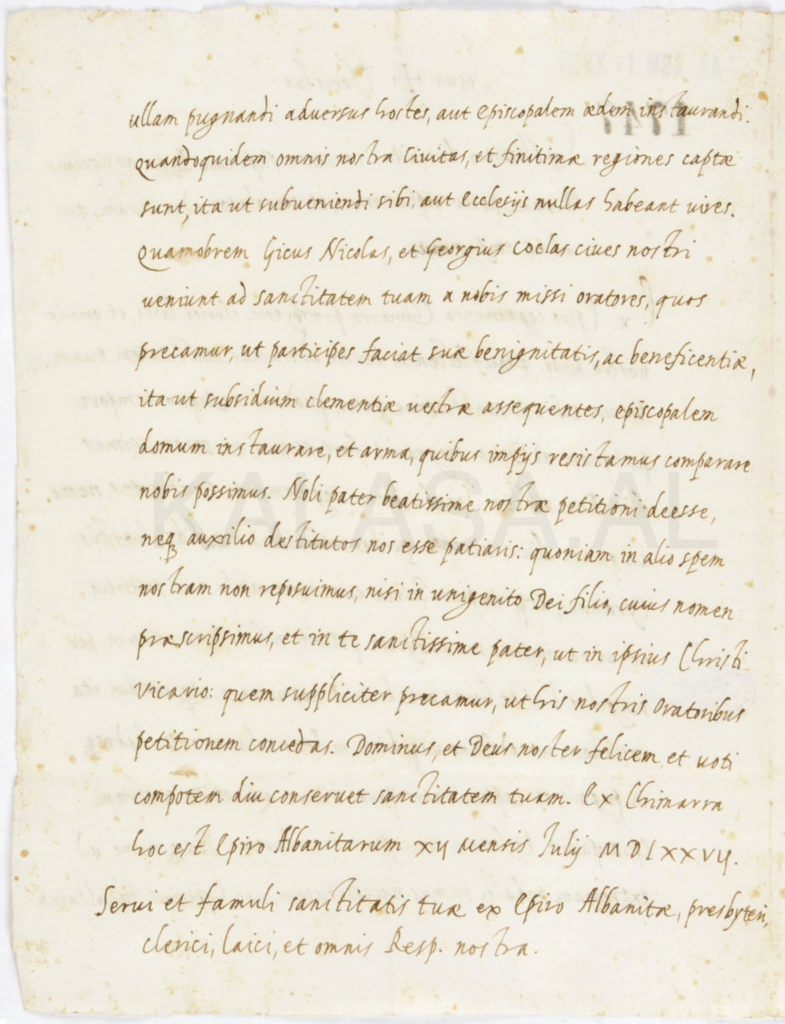 ullam pugnandi adversus hostes, aut episcopalem ædem instaurandi.
Quandoquidem omnis nostra Civitas, et finitimæ regiones captæ
sunt, ita ut subueniendi sibi, aut Ecclesijs nullas habeant vires.
Quamobrem Gicus Nicolas, et Georgius Coclas ciues nostri
veniunt ad sanctitatem tuam a nobis missi oratores, quos
precamur, ut participes faciat suæ benignitatis, ac beneficentiæ,
ita ut subsidium clementiæ uestræ assequentes, episcopalem
domum instaurare, et arma, quibus impijs resistamus comparare
nobis possimus. Noli pater beatissime nostræ petitioni deesse,
neq auxilio destitutos nos esse patiaris: quoniam in alio spem
nostram non reposuimus, nisi in unigenito Dei filio, cuius nomen
præscripsimus, et in te sanctissime pater, ut in ipsius Christi
Vicario: quem suppliciter precamur, ut his nostris Oratoribus
petitionem concedas. Dominus, et Deus noster felicem et uoti
compotem diu conseruet sanctitatem tuam. Ex Chimarra
hoc est Epiro Albanitarum XIJ mensis Julij MDLXXVIJ.
Serui et famuli sanctitatis tuæ ex Epiro Albanitæ, presbyteri,
clerici, laici, et omnis Resp. nostra.
KALASA.AL